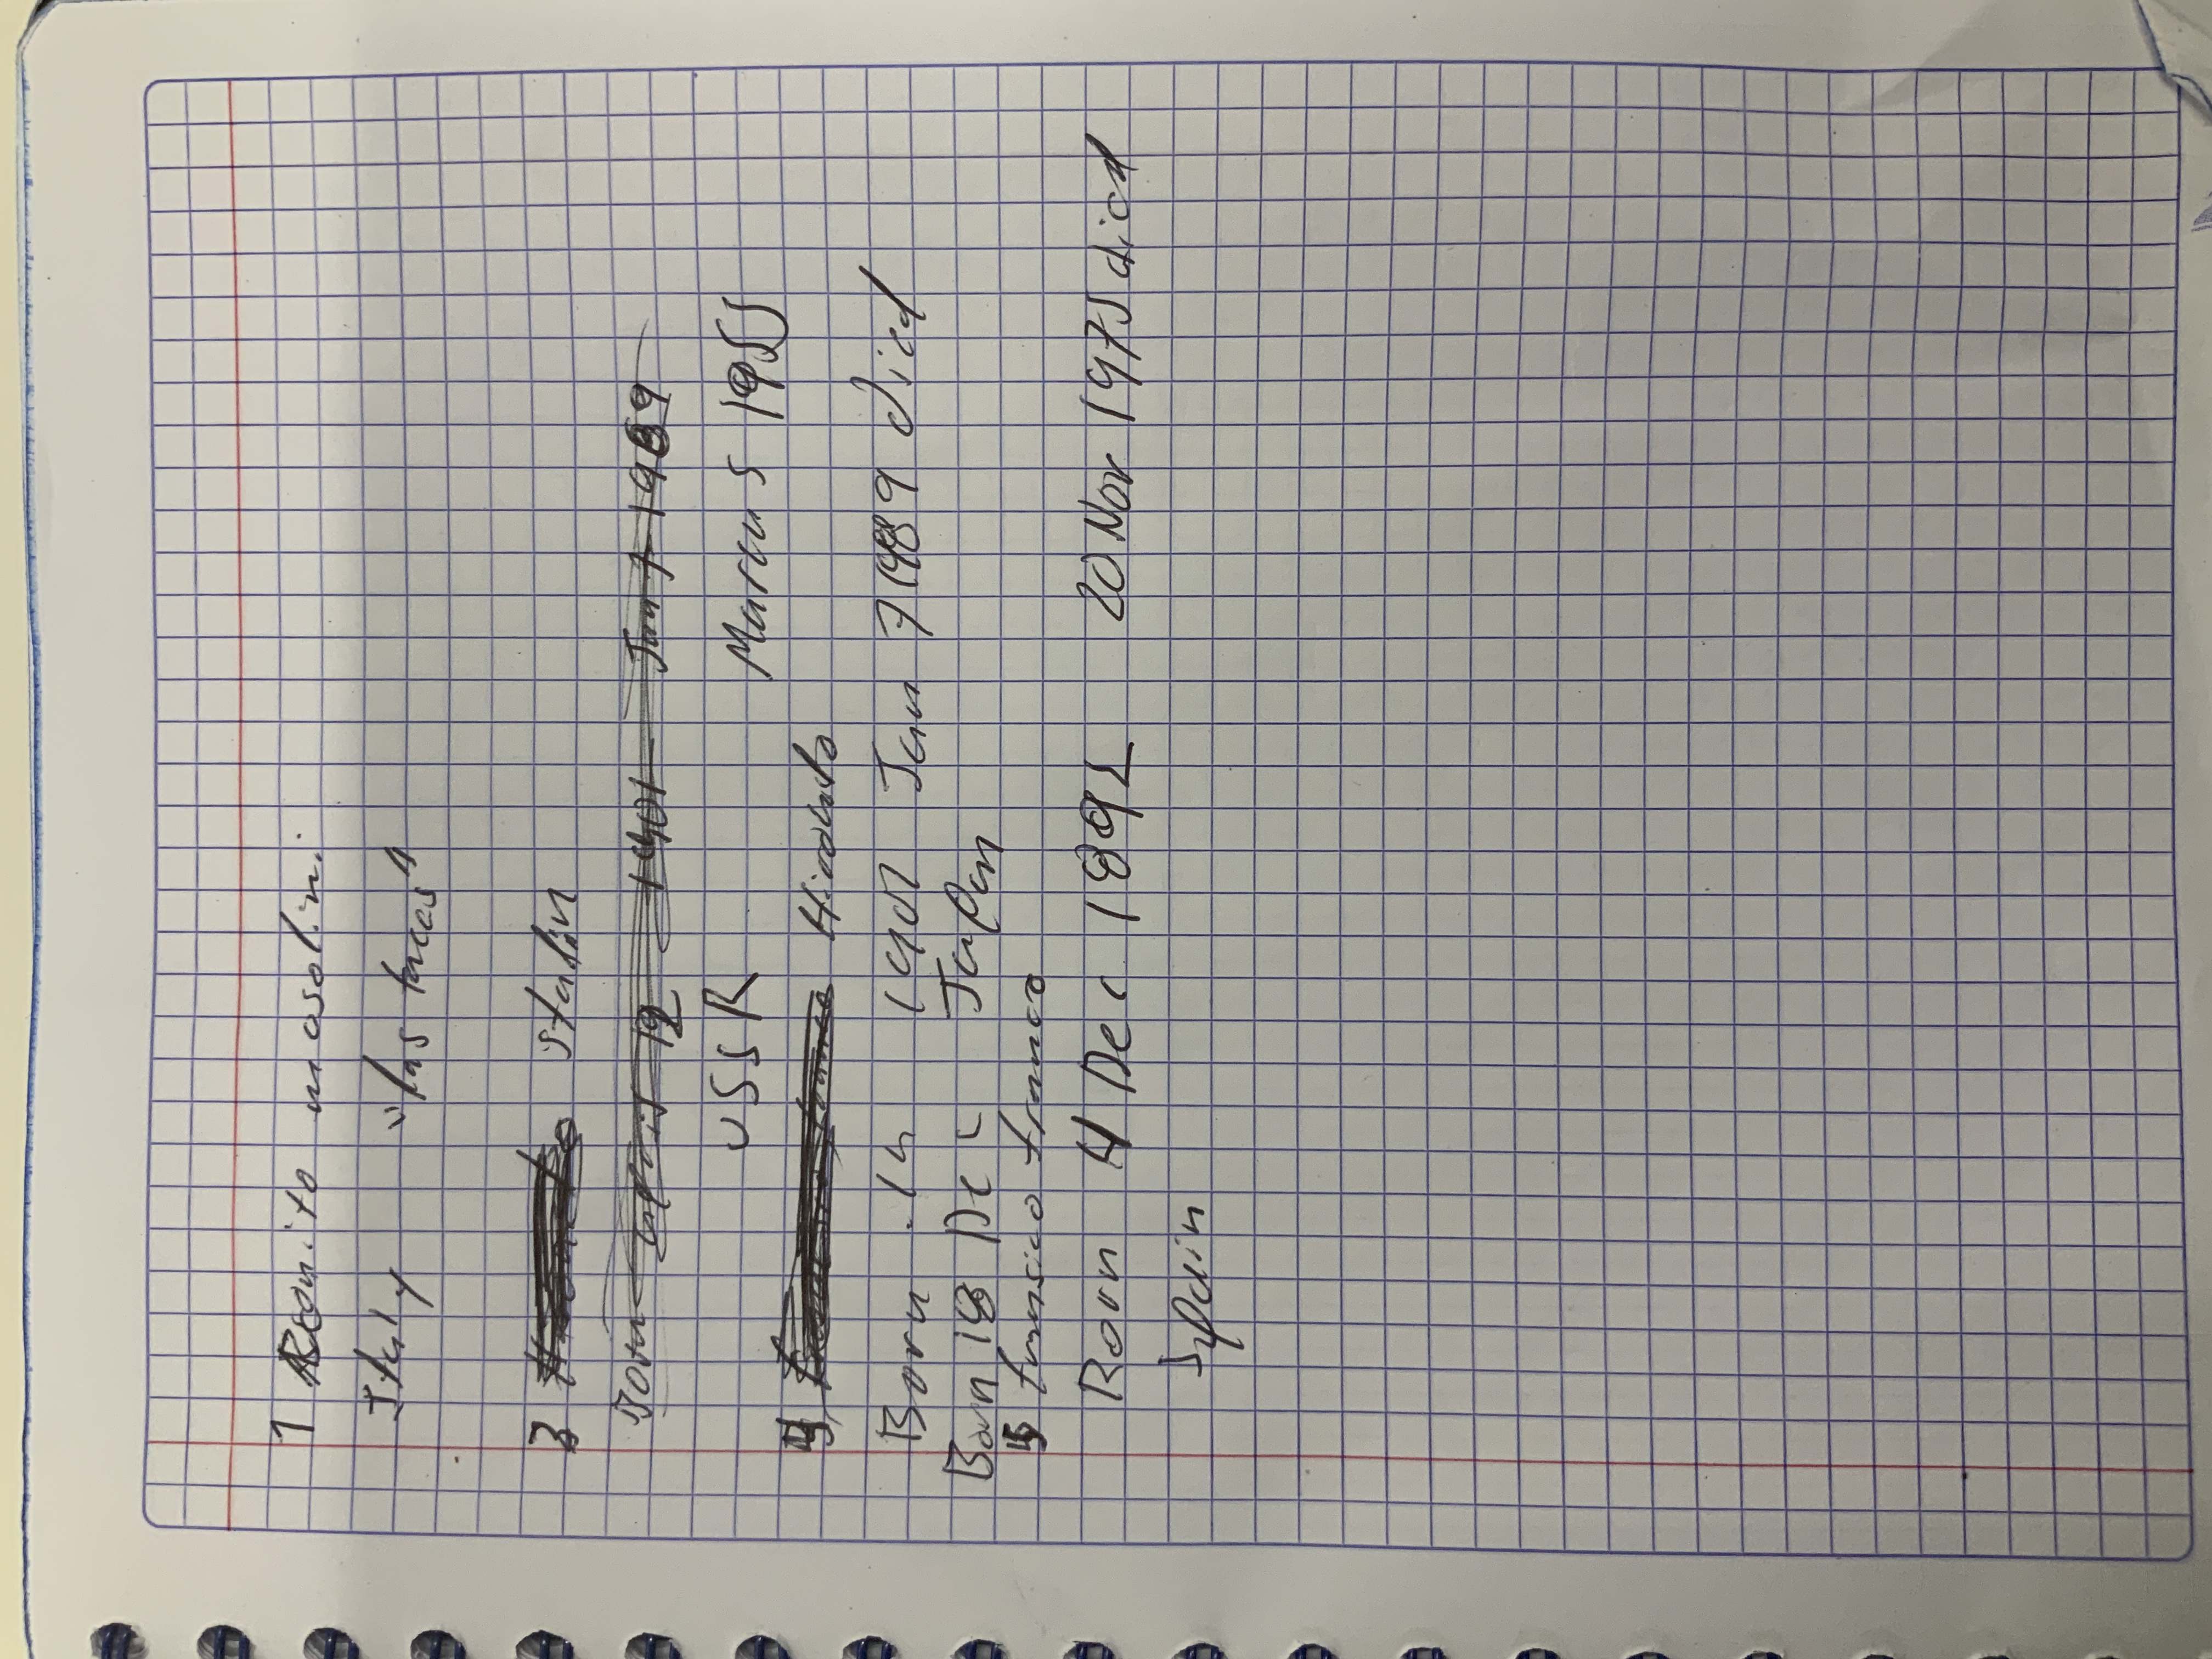 1 Benito mosolini
Italy "las taces"
3 Stalin
Born 12 1901 Jan 7 1989
USSR Marcus 1955
4 Hirohito
Born in 1901 Jan 7 1989 died
Born 18 Dec Japan
5 fransico franco
Born 4 Dec 1892 20 Nov 1975 died
Spain